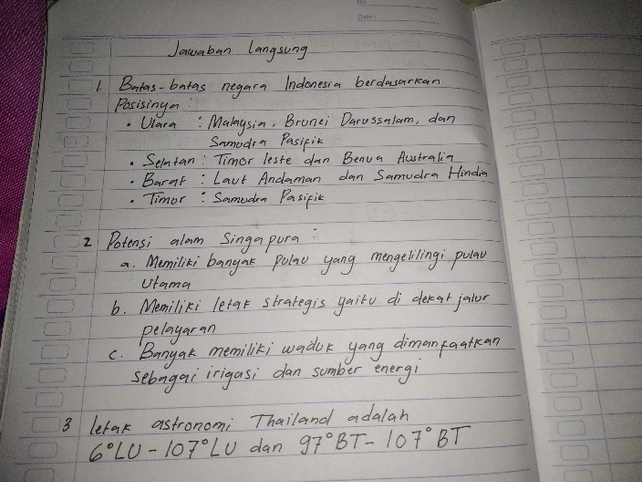 No.
Date:
Jawaban langsung
1. Batas-batas negara Indonesia berdasarkan
Posisinya :
• Utara : Malaysia, Brunei Darussalam, dan
Samudra Pasifik
• Selatan : Timor leste dan Benua Australia
• Barat : Laut Andaman dan Samudra Hindia
• Timur : Samudra Pasifik
2 Potensi alam Singapura :
a. Memiliki banyak pulau yang mengelilingi pulau
utama
b. Memiliki letak strategis yaitu di dekat jalur
pelayaran
c. Banyak memiliki waduk yang dimanfaatkan
sebagai irigasi dan sumber energi
3 letak astronomi Thailand adalah
6°LU - 107°LU dan 97°BT - 107°BT